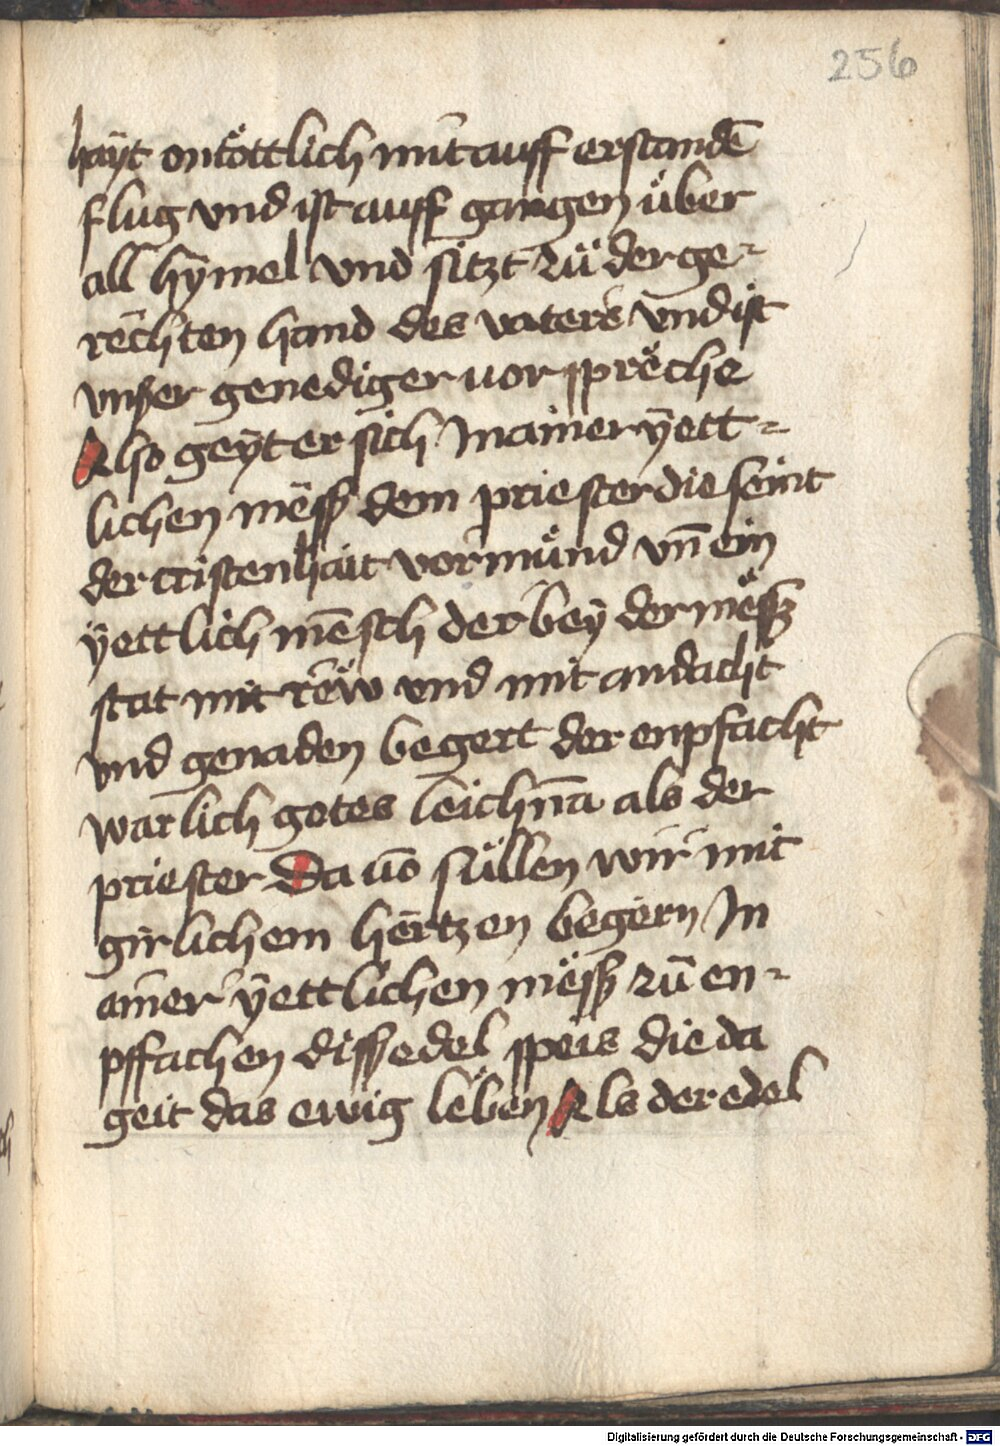 256
hayt ontöttlich mit auff erstandē
flug vnd ist auff gangen über
all hymel vnd sitzt zü der ge-
rechten hand des vaters vnd ist
vnser genediger vor sprëche
Also geyt er sich In ainer yett-
lichen mëss dem priester die seint
der cristenhait vormünd vn̄ ein
yettlich mensch der bey der mëss
stat mit rëw vnd mit andacht
vnd genaden begert der enpfacht
warlich gotes leichnā als der
priester Da uō süllen wir mit
girlichem hertzen begern In
ainer yettlichen mëss zü en-
pffachen diss edel speis die da
geit das ewig leben Als der edel
Digitalisierung gefördert durch die Deutsche Forschungsgemeinschaft - DFG